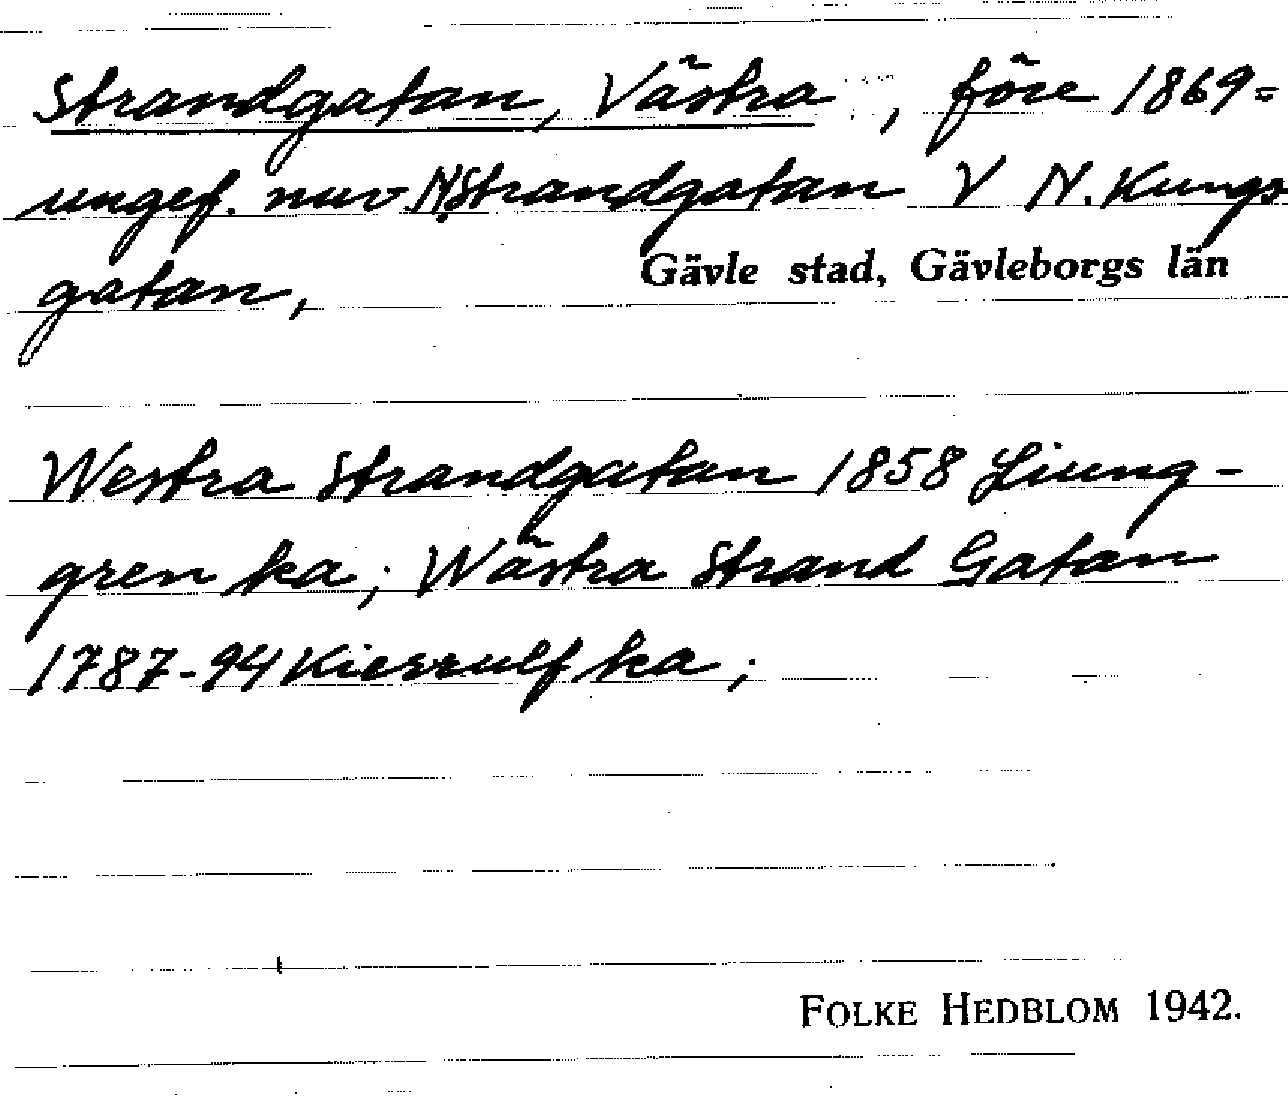 Strandgatan, Västra, före 1869=
ungef. nuv N. Strandgatan V N. Kungs
gatan,
Gävle stad, Gävleborgs län
Westra Strandgatan 1858 Liung-
gren ka; Wästra Strand Gatan
1787-94 Kierrulf ka;
FOLKE HEDBLOM 1942.